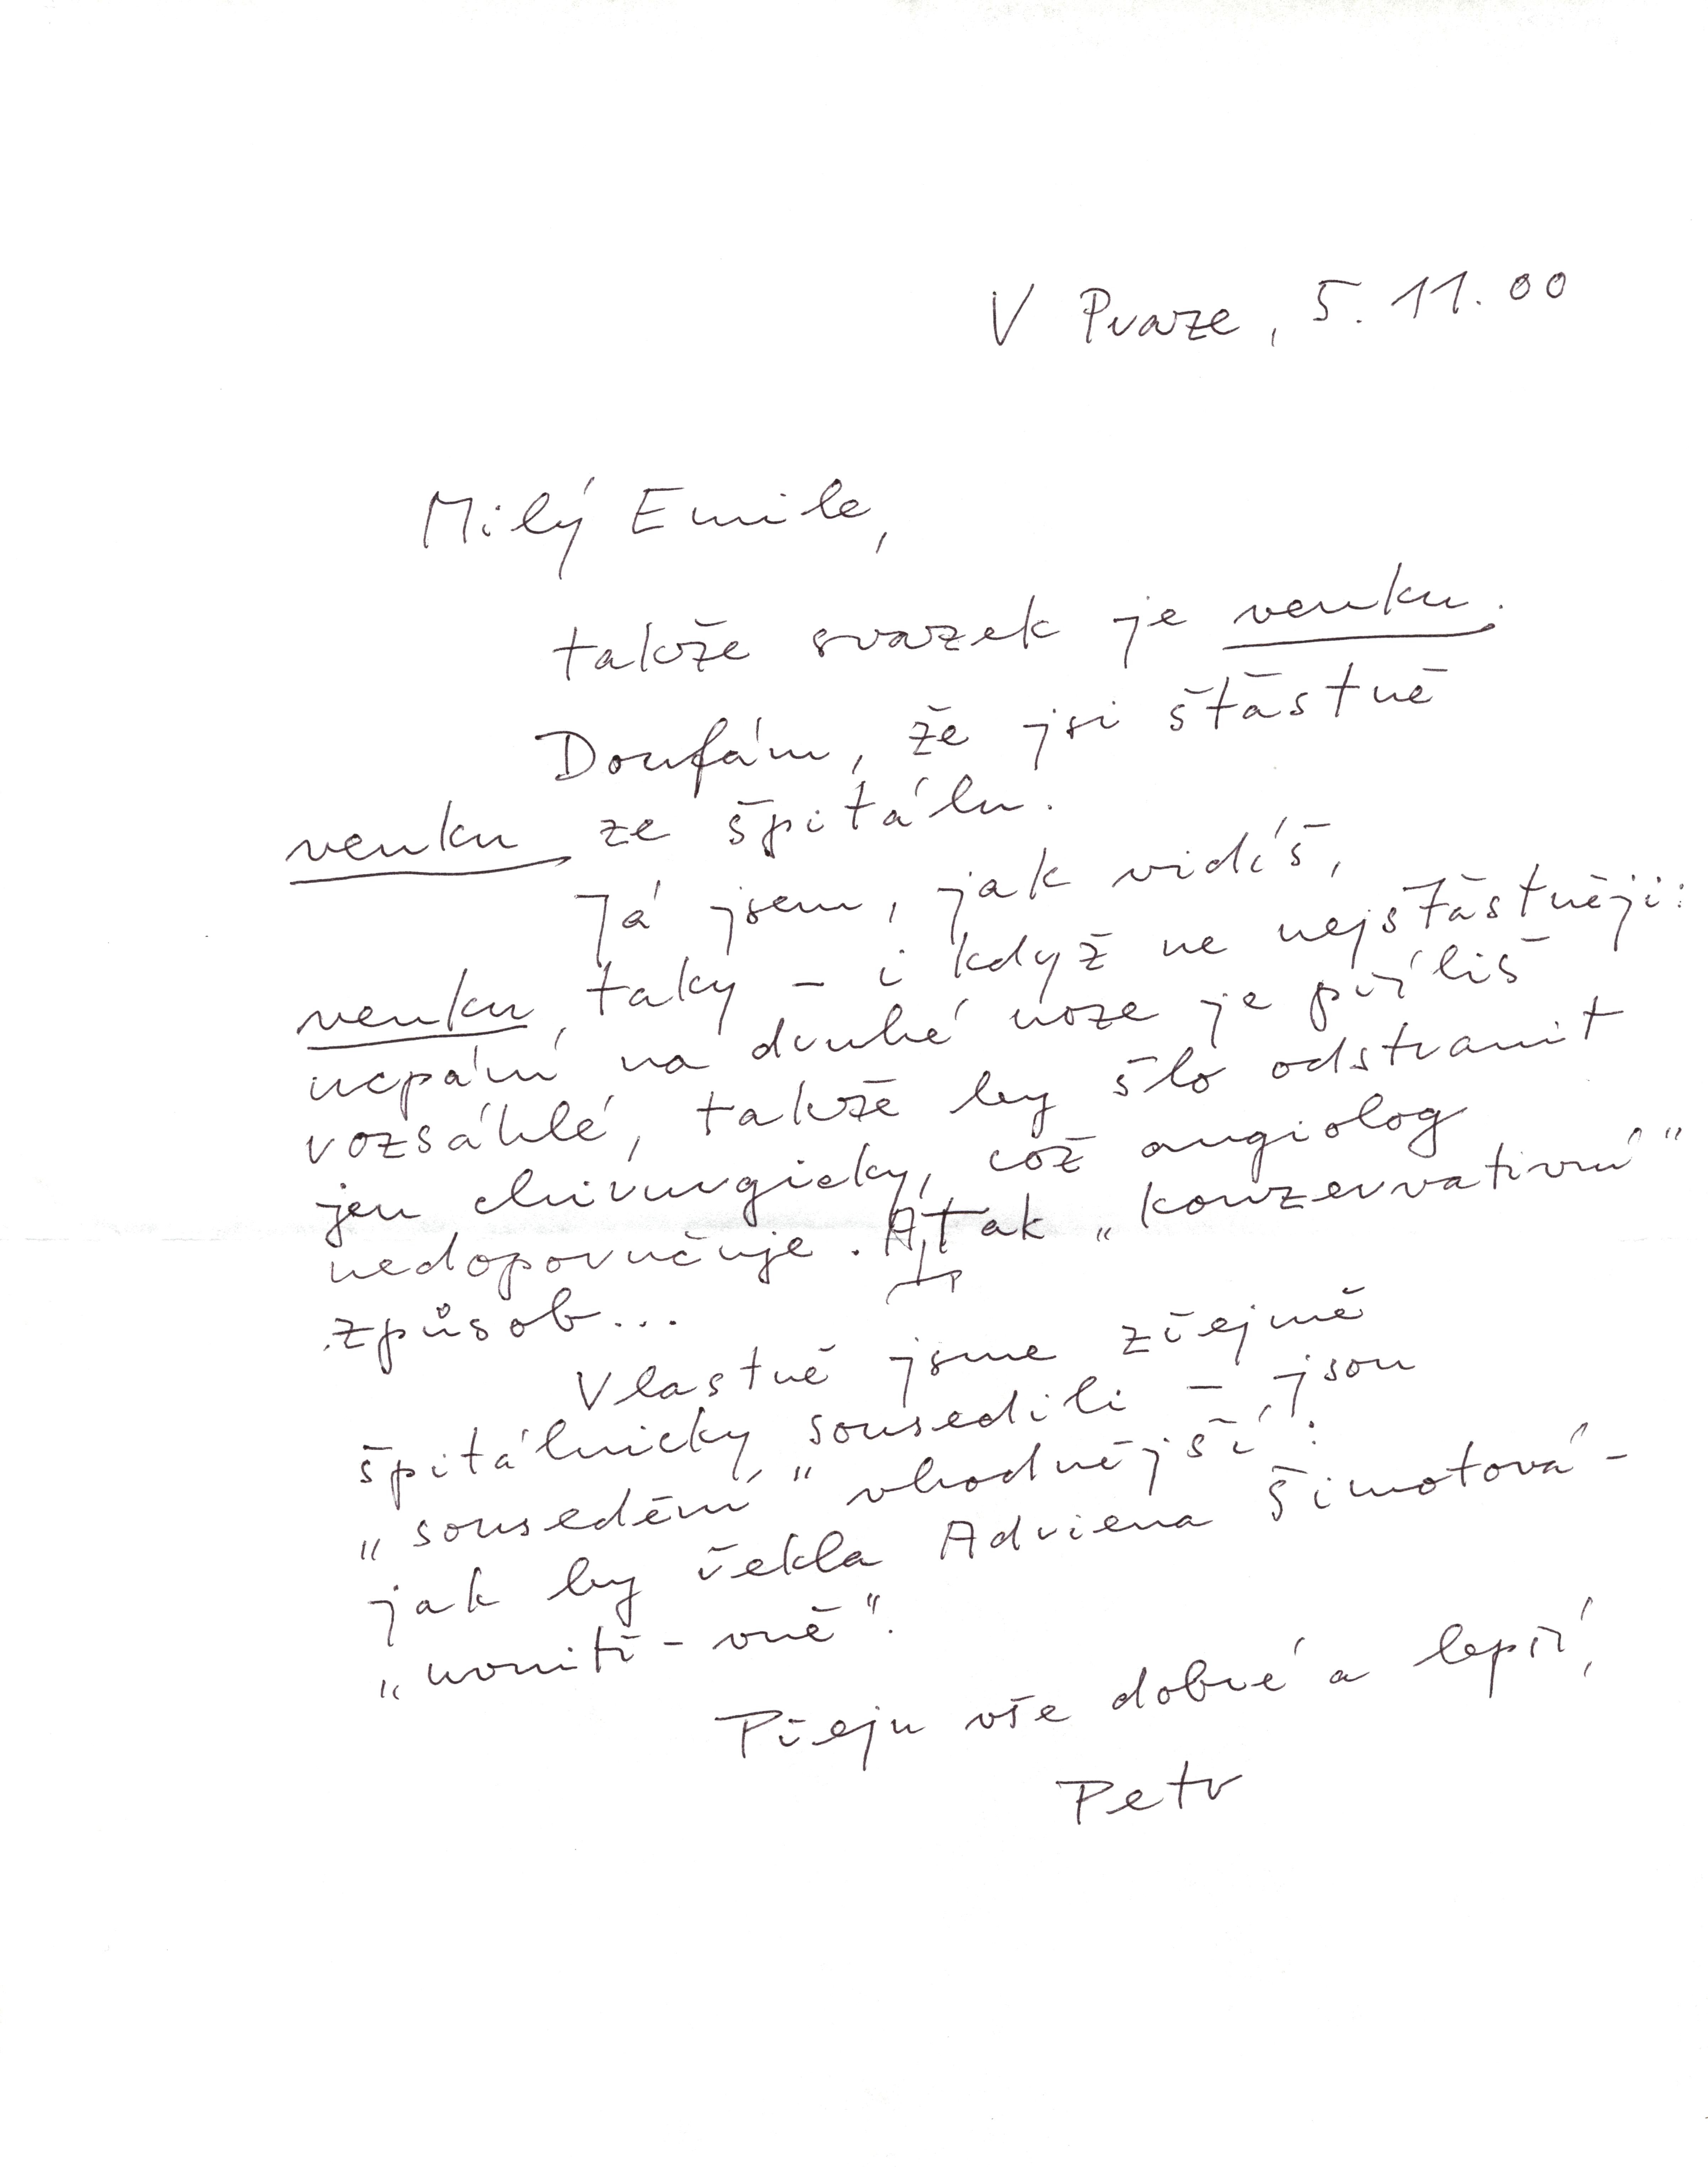 V Praze, 5. 11. 00
Milý Emile,
takže svazek je venku.
Doufám, že jsi šťastně
venku ze špitálu.
Já jsem, jak vidíš,
venku, taky – i když ne nejšťastněji:
ucpání na druhé noze je příliš
rozsáhlé, takže by šlo odstranit
jen chirurgicky, což angiolog
nedoporučuje. A tak „konzervativní“
způsob...
Vlastně jsme zřejmě
špitálnicky sousedili – jsou
„sousedění“ vhodnější:
jak by řekla Adriena Šimotová –
„uvnitř – vně“.
Přeju vše dobré a lepší,
Petr